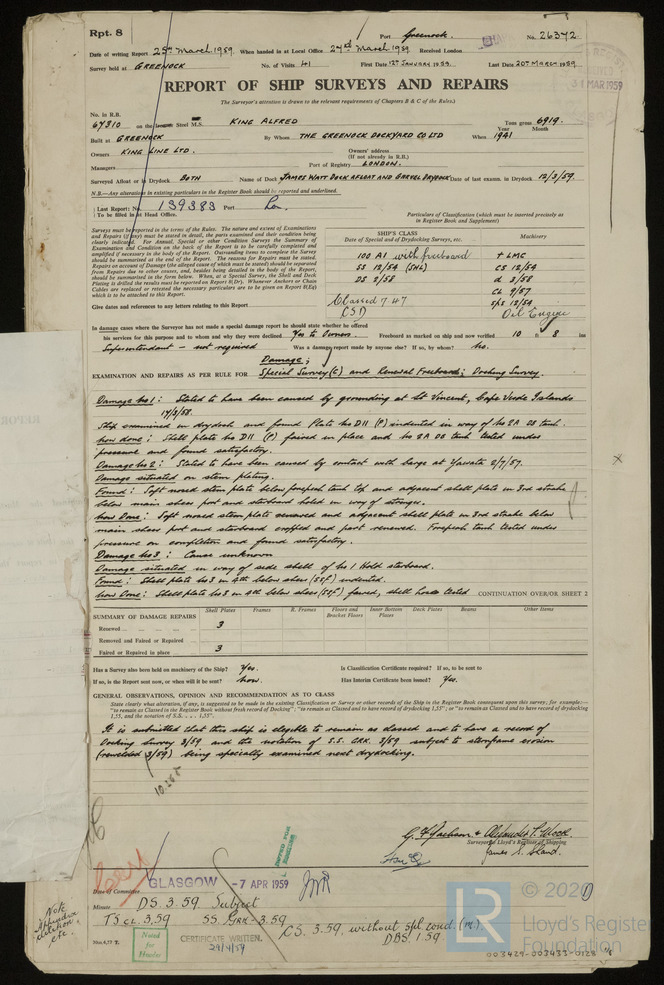 Rpt. 8
Port Greenock. No. 26372
Date of writing Report 25th March 1959. When handed in at Local Office 27th March 1959 Received London
Survey held at GREENOCK No. of Visits 41 First Date 12th JANUARY 1959. Last Date 20th MARCH 1959
31 MAR 1959
REPORT OF SHIP SURVEYS AND REPAIRS
The Surveyor's attention is drawn to the relevant requirements of Chapters B & C of the Rules.)
No. in R.B.
67310 on the Steel M.S. KING ALFRED Tons gross 6919.
Built at GREENOCK By Whom THE GREENOCK DOCKYARD CO LTD When 1941 Year Month
Owners KING LINE LTD. Owners' address
(If not already in R.B.)
Managers Port of Registry LONDON.
Surveyed Afloat or in Drydock BOTH Name of Dock JAMES WATT DOCK AFLOAT AND GARVEL DRYDOCK Date of last exam. in Drydock 12/3/59
N.B.—Any alterations in existing particulars in the Register Book should be reported and underlined.
Last Report: No. 139383 Port Lon.
To be filled in at Head Office.
Particulars of Classification (which must be inserted precisely as in Register Book and Supplement)
Surveys must be reported in the terms of the Rules. The nature and extent of Examinations and Repairs (if any) must be stated in detail, the parts examined and their condition being clearly indicated. For Annual, Special or other Condition Surveys the Summary of Examination and Condition on the back of the Report is to be carefully completed and amplified if necessary in the body of the Report. Outstanding items to complete the Survey should be summarised at the end of the Report. The reasons for Repairs must be stated.
Give dates and references to any letters relating to this Report
SHIP'S CLASS
Date of Special and of Drydocking Surveys, etc. Machinery
100 A1 with freeboard + LMC
SS 12/54 (SHL) CS 12/54
DS 2/58 d 3/58
CL 9/57
SpS 12/54
Classed 7 47 Oil Engine
CSD
In damage cases where the Surveyor has not made a special damage report he should state whether he offered
his services for this purpose and to whom and why they were declined Yes to Owners Freeboard as marked on ship and now verified 10 ft 8 ins
Superintendent - not required Was a damage report made by anyone else? If so, by whom? No.
Damage;
EXAMINATION AND REPAIRS AS PER RULE FOR Special Survey(C) and Renewal Freeboard; Docking Survey.
Damage No 1: Stated to have been caused by grounding at St Vincent, Cape Verde Islands
Ship examined in drydock and found Plate No D11 (P) indented in way of No 2A DB tank.
Now done: Shell plate No D11 (P) faired in place and No 2A DB tank tested under
pressure and found satisfactory.
Damage No 2: Stated to have been caused by contact with barge at Yawata 2/7/57.
Damage situated on stem plating.
Found: Soft nosed stem plate below forepeak tank top and adjacent shell plate in 3rd strake
below main sheer port and starboard holed in way of stringer.
Now Done: Soft nosed stem plate renewed and adjacent shell plate in 3rd strake below
main sheer port and starboard cropped and part renewed. Forepeak tank tested under
pressure on completion and found satisfactory.
Damage No 3: Cause unknown
Damage situated in way of side shell of No 1 Hold starboard.
Found: Shell plate No 3 in 4th below sheer (SSF) indented.
Now Done: Shell plate No 3 in 4th below sheer (SSF) faired, shell hose tested CONTINUATION OVER/OR SHEET 2
SUMMARY OF DAMAGE REPAIRS Shell Plates Frames R. Frames Floors and Bracket Floors Inner Bottom Plates Deck Plates Beams Other Items
Renewed 3
Removed and Faired or Repaired
Faired or Repaired in place 3
Has a Survey also been held on machinery of the Ship? Yes. Is Classification Certificate required? If so, to be sent to
If so, is the Report sent now, or when will it be sent? Now. Has Interim Certificate been issued? Yes.
GENERAL OBSERVATIONS, OPINION AND RECOMMENDATION AS TO CLASS
State clearly what alteration, if any, is suggested to be made in the existing Classification or Survey or other records of the Ship in the Register Book consequent upon this survey, for example:—
"to remain as Classed in the Register Book without fresh record of Docking"; "to remain as Classed and to have record of drydocking 1,55"; or "to remain as Classed and to have record of drydocking
1,55, and the notation of S.S. . . . 1,55".
It is submitted that this ship is elegible to remain as classed and to have a record of
Docking Survey 3/59 and the notation of S.S. GRK. 3/59 subject to sternframe erosion
(rewelded 3/59) being specially examined next drydocking.
Surveyors to Lloyd's Register of Shipping
Date of Committee GLASGOW - 7 APR 1959
Minute DS 3.59 Subject
TS CL 3,59 SS GRK-3.59
CS 3.59, without spl. cond. (m.)
DBS 1.59
Noted for Header
CERTIFICATE WRITTEN.
29/4/59
LR © 2020
Lloyd's Register
Foundation
003429-003433-0128